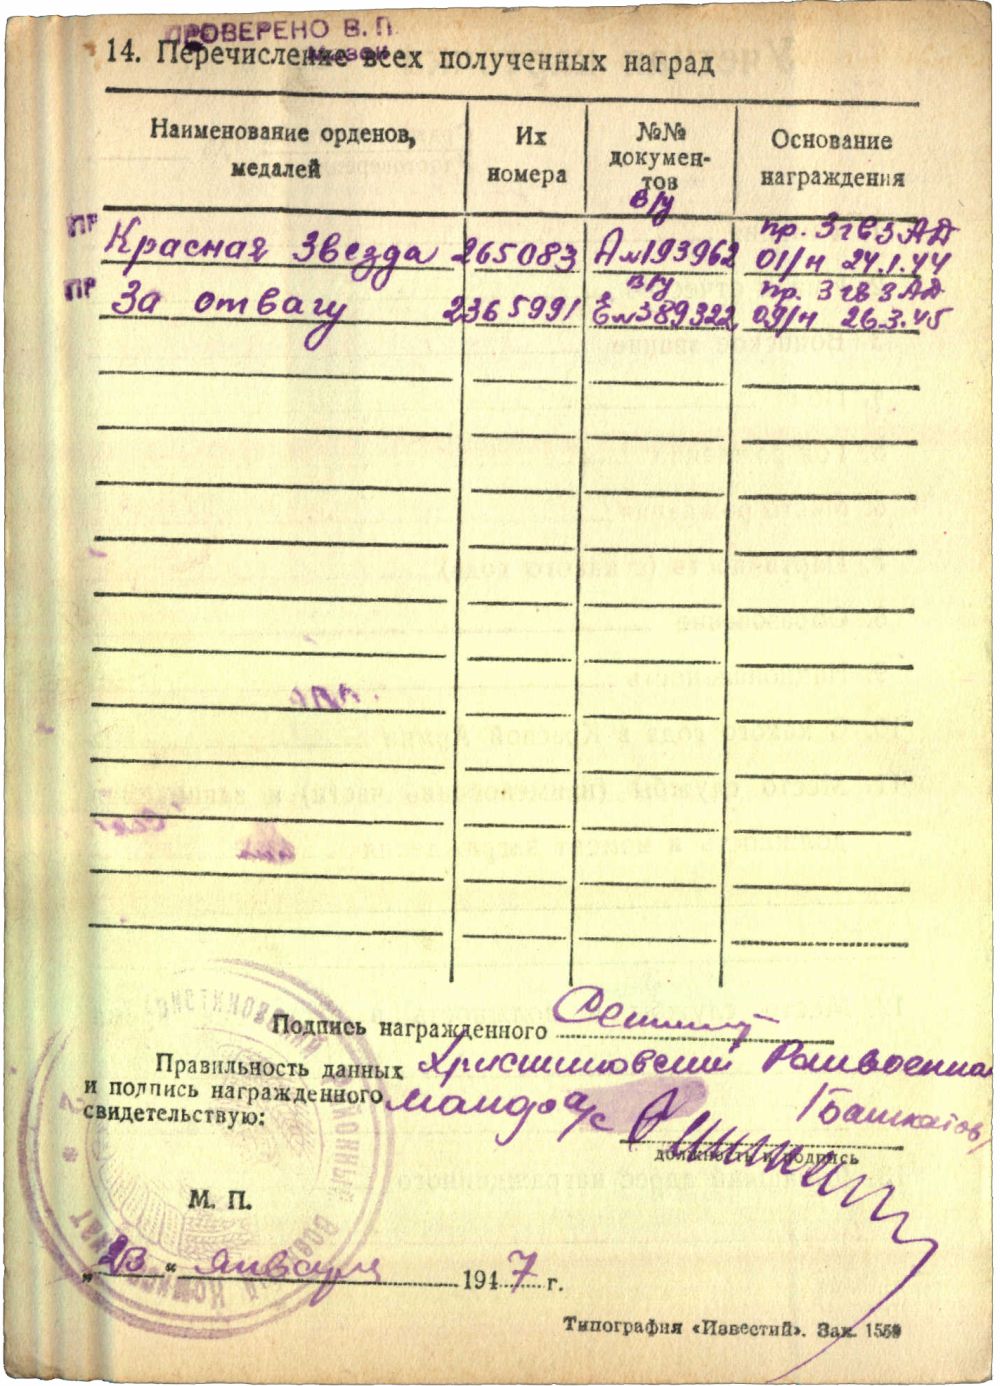 ПРОВЕРЕНО В. П.
14. Перечисление всех полученных наград
Наименование орденов, медалей
Их номера
№№ документов
Основание награждения
ПР Красная Звезда 265083 в/у А №193962 пр. 3 гв 3 АД 01/н 24.1.44
ПР За отвагу 2365991 в/у Е №389322 пр. 3 гв 3 АД 09/н 26.3.45
Подпись награжденного
Правильность данных Христиновский Райвоенко
и подпись награжденного мандо а/с /Башкатов/
свидетельствую:
должность и подпись
М. П.
„23“ января 1947 г.
Типография «Известий». Зак. 1559